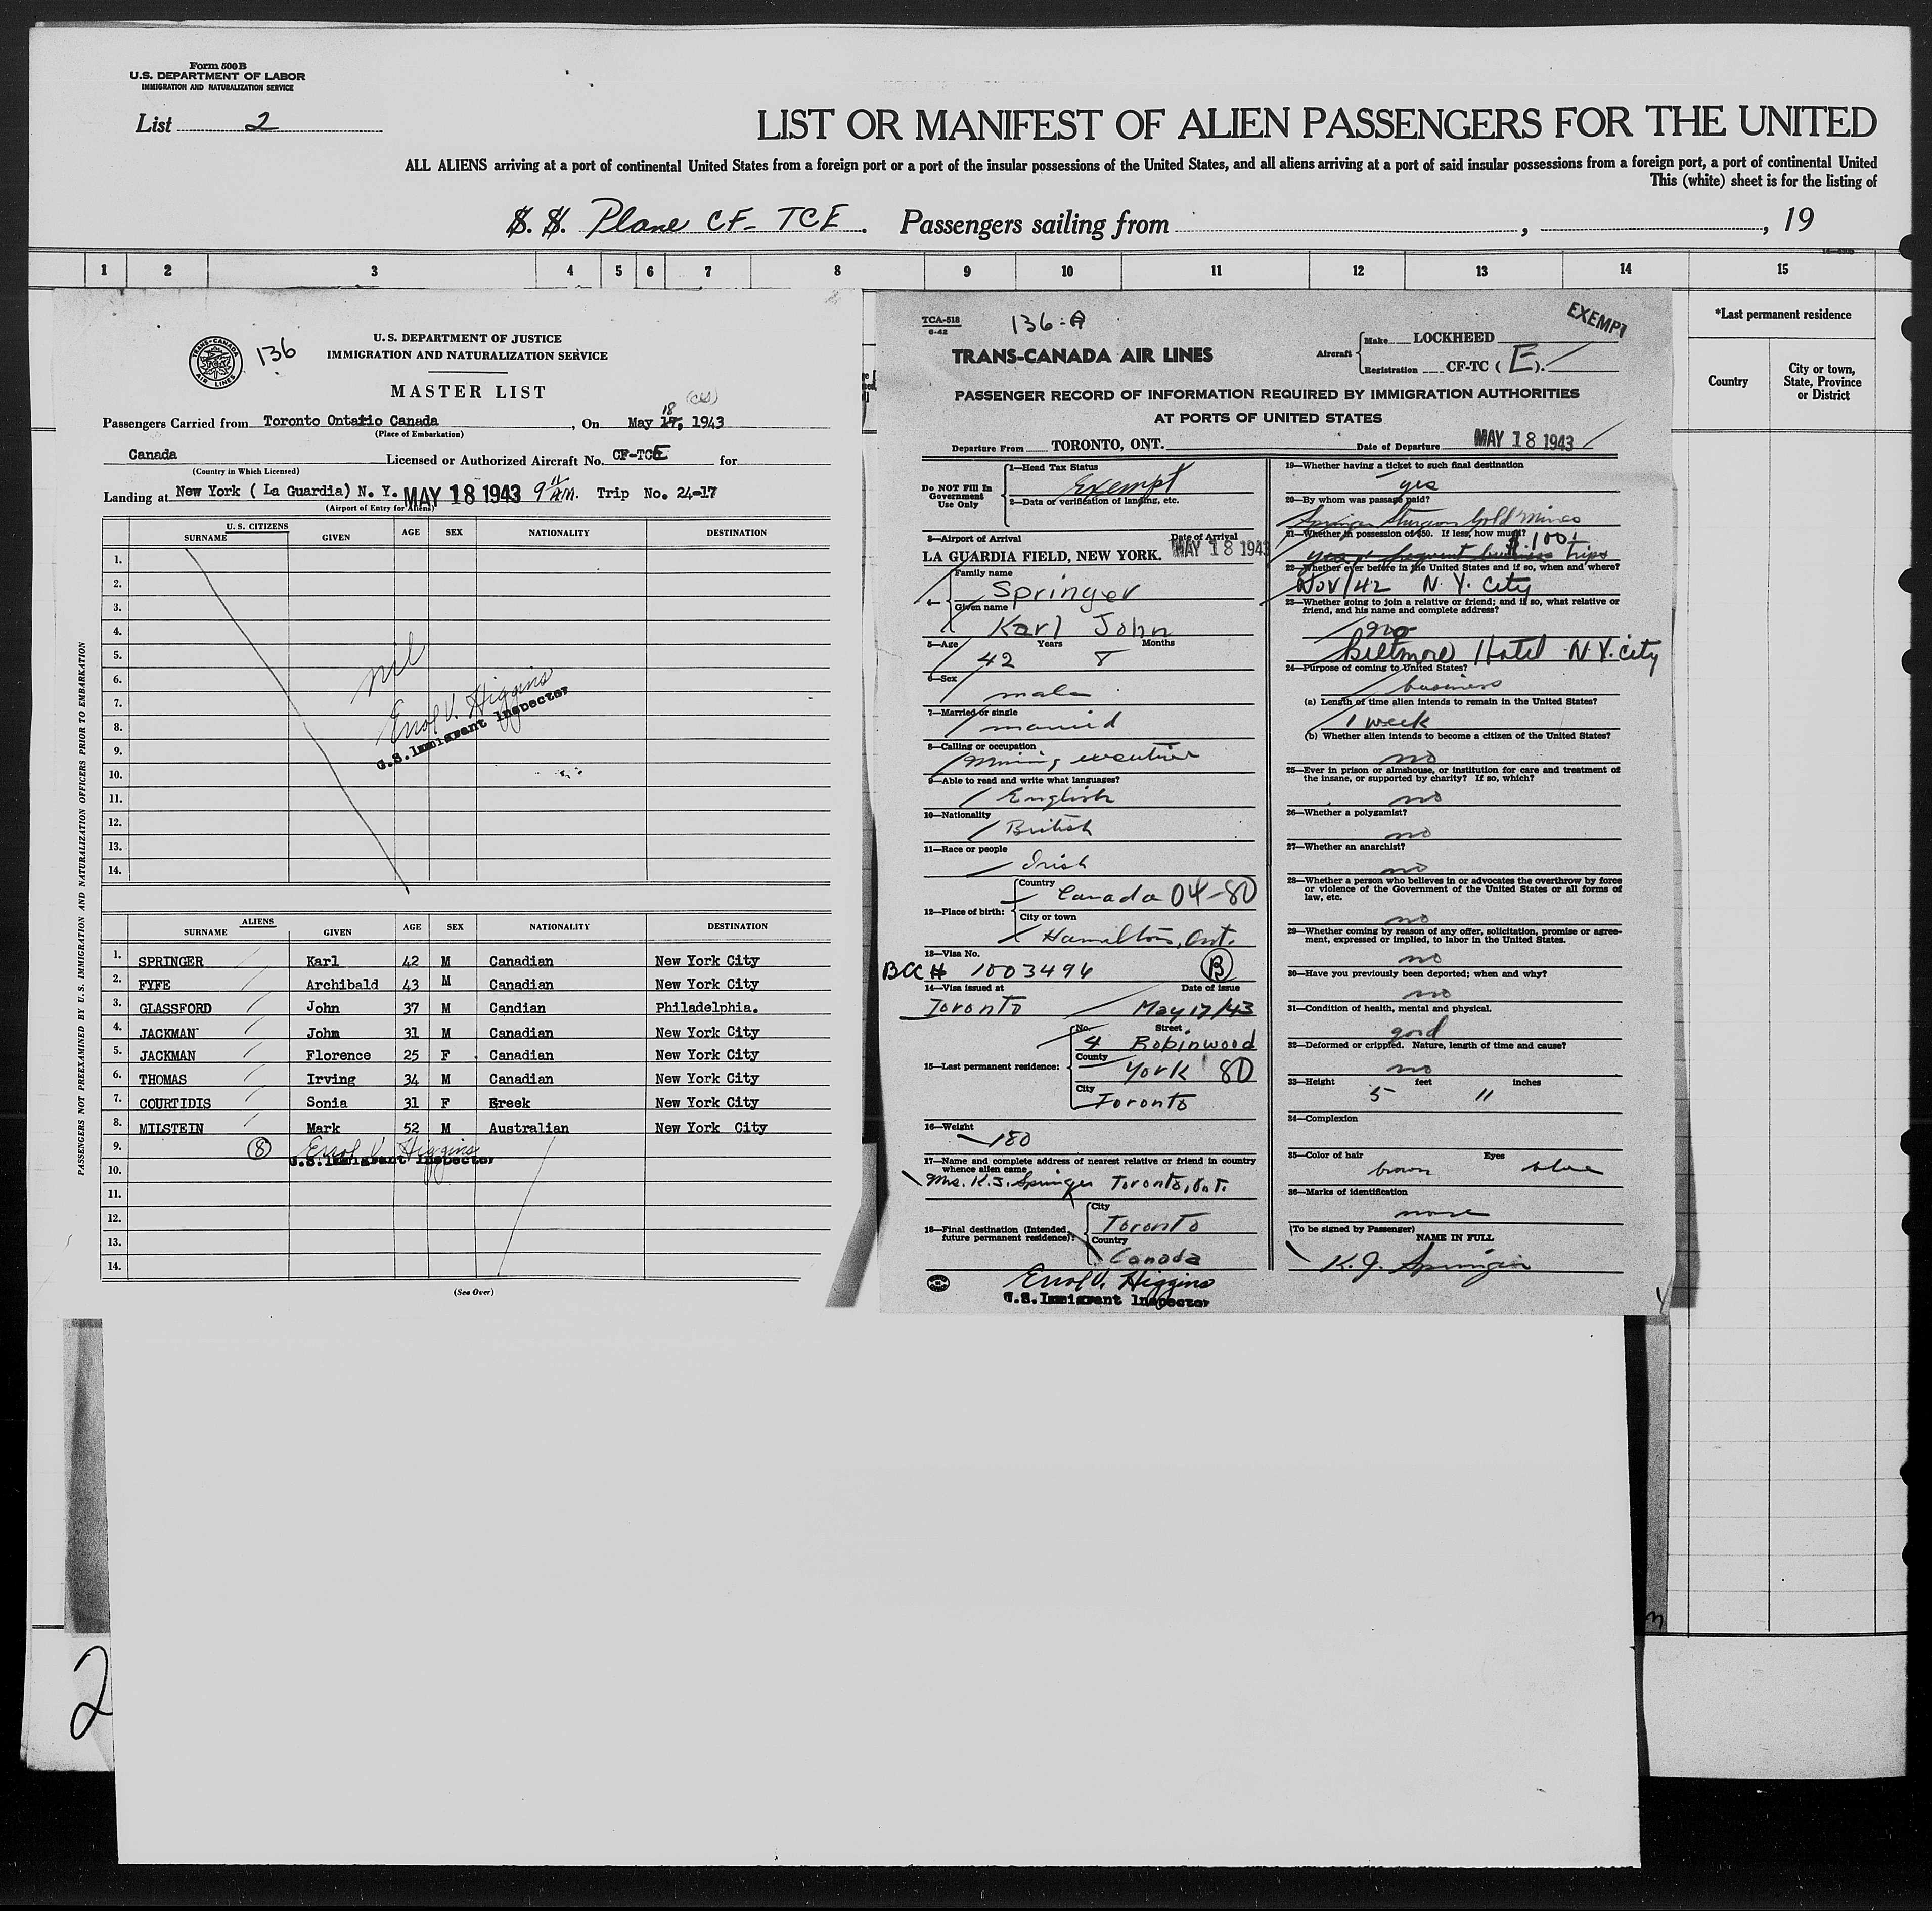 Form 500 B
U.S. DEPARTMENT OF LABOR
IMMIGRATION AND NATURALIZATION SERVICE
List 2
LIST OR MANIFEST OF ALIEN PASSENGERS FOR THE UNITED
ALL ALIENS arriving at a port of continental United States from a foreign port or a port of the insular possessions of the United States, and all aliens arriving at a port of said insular possessions from a foreign port, a port of continental United
This (white) sheet is for the listing of
S. S. Plane CF- TCE. Passengers sailing from , , 19
1 2 3 4 5 6 7 8 9 10 11 12 13 14 15
*Last permanent residence
Country
City or town, State, Province or District
TRANS-CANADA AIR LINES
136
U. S. DEPARTMENT OF JUSTICE
IMMIGRATION AND NATURALIZATION SERVICE
MASTER LIST
Passengers Carried from Toronto Ontario Canada, On May 17, 18 1943
(Place of Embarkation)
Canada Licensed or Authorized Aircraft No. CF-TCE for
(Country in Which Licensed)
Landing at New York ( La Guardia) N. Y. MAY 18 1943 9 AM. Trip No. 24-17
(Airport of Entry for Aliens)
U. S. CITIZENS
SURNAME GIVEN AGE SEX NATIONALITY DESTINATION
1.
2.
3.
4.
5.
6.
7.
8.
9.
10.
11.
12.
13.
14.
nil
Errol V. Higgins
U.S. Immigrant Inspector
PASSENGERS NOT PREEXAMINED BY U.S. IMMIGRATION AND NATURALIZATION OFFICERS PRIOR TO EMBARKATION
ALIENS
SURNAME GIVEN AGE SEX NATIONALITY DESTINATION
1. SPRINGER Karl 42 M Canadian New York City
2. FYFE Archibald 43 M Canadian New York City
3. GLASSFORD John 37 M Candian Philadelphia.
4. JACKMAN John 31 M Canadian New York City
5. JACKMAN Florence 25 F Canadian New York City
6. THOMAS Irving 34 M Canadian New York City
7. COURTIDIS Sonia 31 F Greek New York City
8. MILSTEIN Mark 52 M Australian New York City
9. 8 Errol V. Higgins
U.S. Immigrant Inspector
10.
11.
12.
13.
14.
(See Over)
TCA-518
6-42
136-A
EXEMPT
TRANS-CANADA AIR LINES
Aircraft Make LOCKHEED
Registration CF-TC ( E ).
PASSENGER RECORD OF INFORMATION REQUIRED BY IMMIGRATION AUTHORITIES
AT PORTS OF UNITED STATES
Departure From TORONTO, ONT. Date of Departure MAY 18 1943
Do NOT Fill In
Government
Use Only
1—Head Tax Status
Exempt
2—Data or verification of landing, etc.
3—Airport of Arrival Date of Arrival
LA GUARDIA FIELD, NEW YORK. MAY 18 1943
4— Family name
Springer
Given name
Karl John
5—Age Years Months
42 8
6—Sex
male
7—Married or single
married
8—Calling or occupation
Mining executive
9—Able to read and write what languages?
English
10—Nationality
British
11—Race or people
Irish
12—Place of birth: Country
Canada 04-80
City or town
Hamilton, Ont.
13—Visa No.
BCC # 1003496 B
14—Visa issued at Date of issue
Toronto May 17/43
15—Last permanent residence: No. Street
4 Robinwood
County
York 80
City
Toronto
16—Weight
180
17—Name and complete address of nearest relative or friend in country
whence alien came
Mrs. K.J. Springer Toronto, Ont.
18—Final destination (Intended
future permanent residence): City
Toronto
Country
Canada
Errol V. Higgins
U.S. Immigrant Inspector
19—Whether having a ticket to such final destination
yes
20—By whom was passage paid?
Springer Sturgeon Gold Mines
21—Whether in possession of $50. If less, how much?
$100+
yes, frequent business trips
22—Whether ever before in the United States and if so, when and where?
Nov/42 N. Y. City
23—Whether going to join a relative or friend; and if so, what relative or
friend, and his name and complete address?
no
Biltmore Hotel N.Y. City
24—Purpose of coming to United States?
business
(a) Length of time alien intends to remain in the United States?
1 week
(b) Whether alien intends to become a citizen of the United States?
no
25—Ever in prison or almshouse, or institution for care and treatment of
the insane, or supported by charity? If so, which?
no
26—Whether a polygamist?
no
27—Whether an anarchist?
no
28—Whether a person who believes in or advocates the overthrow by force
or violence of the Government of the United States or all forms of
law, etc.
no
29—Whether coming by reason of any offer, solicitation, promise or agree-
ment, expressed or implied, to labor in the United States.
no
30—Have you previously been deported; when and why?
no
31—Condition of health, mental and physical.
good
32—Deformed or crippled. Nature, length of time and cause?
no
33—Height feet inches
5 11
34—Complexion
35—Color of hair Eyes
brown blue
36—Marks of identification
none
(To be signed by Passenger)
NAME IN FULL
K. J. Springer
2